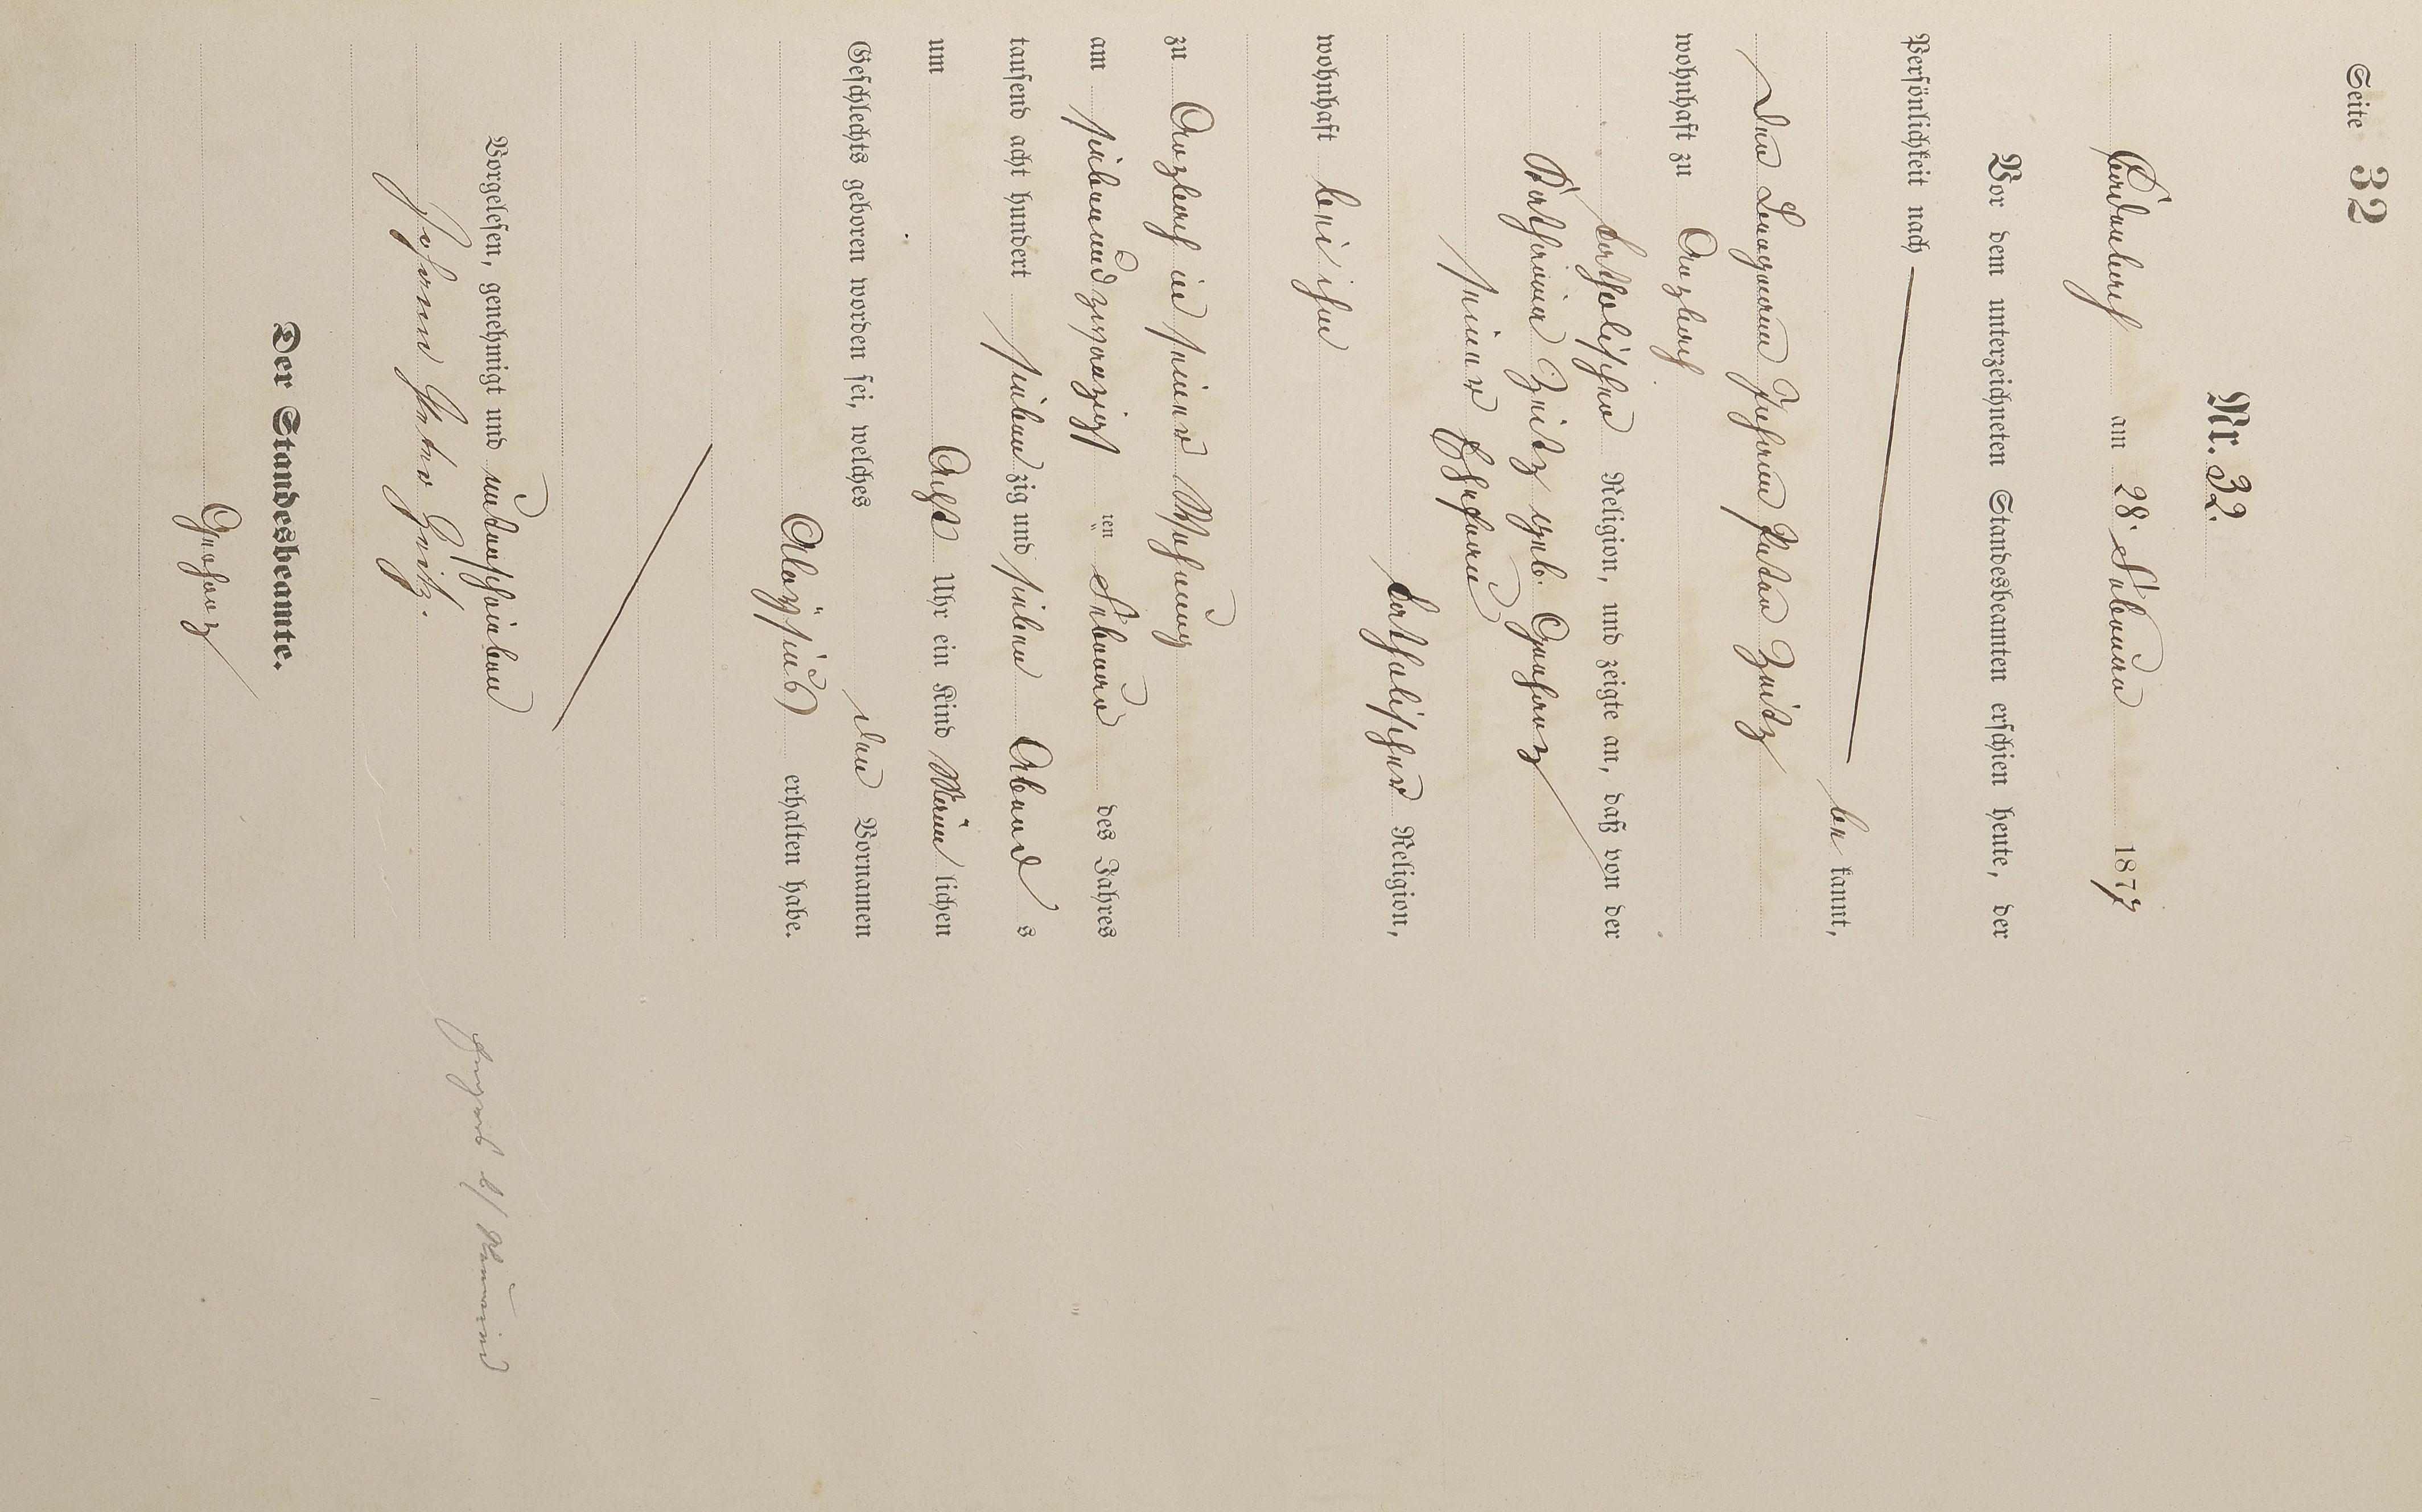 Seite 32
Nr. 32.
am 28. Februar 1877
Vor dem unterzeichneten Standesbeamten erschien heute, der
Persönlichkeit nach
be kannt,
der Johann Peter Zeitz
wohnhaft zu Arzbach
katholischer Religion, und zeigte an, daß von der
Katharina Zeitz geb. Gerharz
seiner Ehefrau
katholischer Religion,
wohnhaft bei ihm
zu Arzbach in seiner Wohnung
am siebenundzwanzigst ten Februar des Jahres
tausend acht hundert sieben zig und sieben Abend s
um Acht Uhr ein Kind Männ lichen
Geschlechts geboren worden sei, welches den Vornamen
Aloysius erhalten habe.
Vorgelesen, genehmigt und unterschrieben
Johann Peter Zeitz.
Der Standesbeamte.
Gerharz